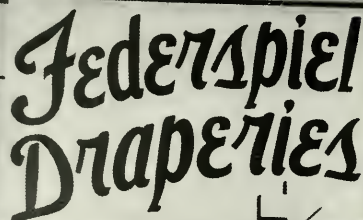 Federspiel
Draperies